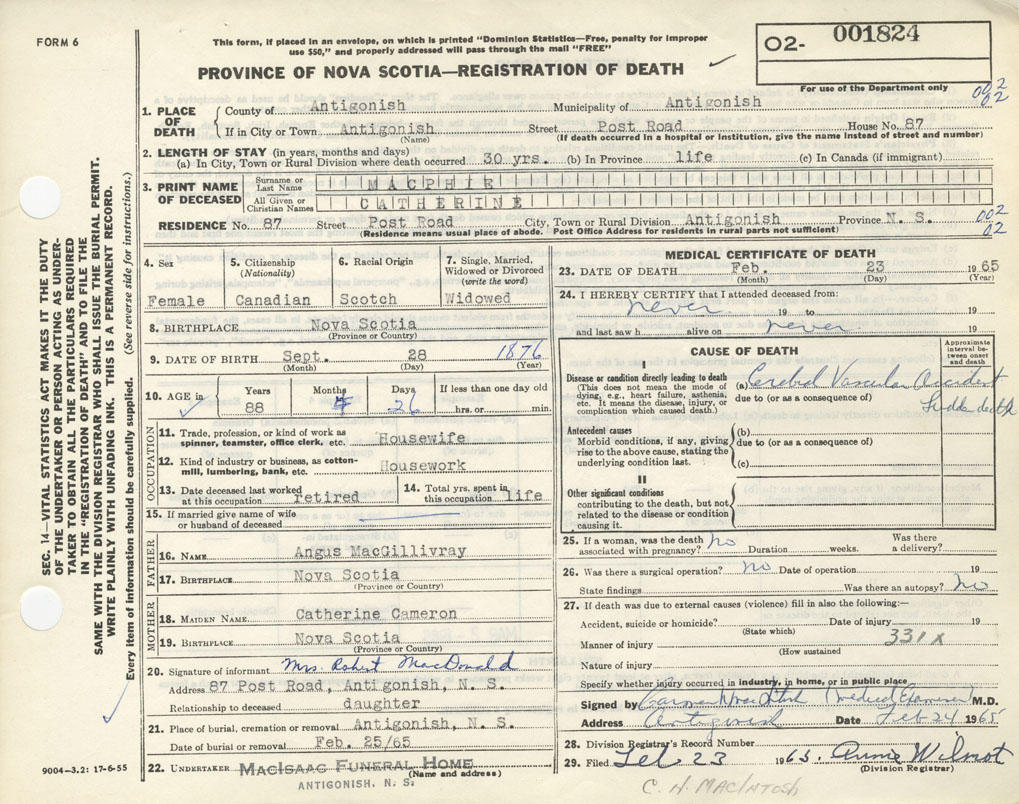 FORM 6
This form, if placed in an envelope, on which is printed "Dominion Statistics—Free, penalty for improper
use $50," and properly addressed will pass through the mail "FREE"
O2- 001824
For use of the Department only
PROVINCE OF NOVA SCOTIA—REGISTRATION OF DEATH
002
02
1. PLACE OF DEATH
County of Antigonish Municipality of Antigonish
If in City or Town Antigonish Street Post Road House No. 87
(Name) (If death occurred in a hospital or Institution, give the name instead of street and number)
2. LENGTH OF STAY (in years, months and days)
(a) In City, Town or Rural Division where death occurred 30 yrs. (b) In Province life (c) In Canada (if immigrant)
3. PRINT NAME OF DECEASED
Surname or Last Name MACPHIE
All Given or Christian Names CATHERINE
RESIDENCE No. 87 Street Post Road City, Town or Rural Division Antigonish Province N. S.
(Residence means usual place of abode. Post Office Address for residents in rural parts not sufficient)
002
02
4. Sex
Female
5. Citizenship
(Nationality)
Canadian
6. Racial Origin
Scotch
7. Single, Married,
Widowed or Divorced
(write the word)
Widowed
8. BIRTHPLACE Nova Scotia
(Province or Country)
9. DATE OF BIRTH Sept. 28 1876
(Month) (Day) (Year)
10. AGE in
Years Months Days If less than one day old
88 4 26 hrs. or min.
OCCUPATION
11. Trade, profession, or kind of work as
spinner, teamster, office clerk, etc. Housewife
12. Kind of industry or business, as cotton-
mill, lumbering, bank, etc. Housework
13. Date deceased last worked
at this occupation retired
14. Total yrs. spent in
this occupation life
15. If married give name of wife
or husband of deceased
FATHER
16. NAME Angus MacGillivray
17. BIRTHPLACE Nova Scotia
(Province or Country)
MOTHER
18. MAIDEN NAME Catherine Cameron
19. BIRTHPLACE Nova Scotia
(Province or Country)
20. Signature of informant Mrs. Robert MacDonald
Address 87 Post Road, Antigonish, N. S.
Relationship to deceased daughter
21. Place of burial, cremation or removal Antigonish, N. S.
Date of burial or removal Feb. 25/65
22. UNDERTAKER MACISAAC FUNERAL HOME
(Name and address)
ANTIGONISH, N. S.
MEDICAL CERTIFICATE OF DEATH
23. DATE OF DEATH Feb. 23 1965
(Month) (Day) (Year)
24. I HEREBY CERTIFY that I attended deceased from:
never 19 to 19
and last saw h alive on never 19
CAUSE OF DEATH
Approximate
interval be-
tween onset
and death
I
Disease or condition directly leading to death
(This does not mean the mode of
dying, e.g., heart failure, asthenia,
etc. It means the disease, injury, or
complication which caused death.)
(a) Cerebral Vascular Accident
due to (or as a consequence of)
Sudden death
Antecedent causes
Morbid conditions, if any, giving
rise to the above cause, stating the
underlying condition last.
(b)
due to (or as a consequence of)
(c)
II
Other significant conditions
contributing to the death, but not
related to the disease or condition
causing it.
25. If a woman, was the death
associated with pregnancy? no Duration weeks. Was there
a delivery?
26. Was there a surgical operation? no Date of operation 19
State findings Was there an autopsy? no
27. If death was due to external causes (violence) fill in also the following:—
Accident, suicide or homicide? Date of injury 19
(State which)
331X
Manner of injury
(How sustained
Nature of injury
Specify whether injury occurred in industry, in home, or in public place
Signed by (Medical Examiner) M.D.
Address Antigonish Date Feb 24 1965
28. Division Registrar's Record Number
29. Filed Feb 23 1965. Anna Wilmot
(Division Registrar)
C. H. MACINTOSH
SEC. 14—VITAL STATISTICS ACT MAKES IT THE DUTY
OF THE UNDERTAKER OR PERSON ACTING AS UNDER-
TAKER TO OBTAIN ALL THE PARTICULARS REQUIRED
IN THE "REGISTRATION OF DEATH" AND TO FILE THE
SAME WITH THE DIVISION REGISTRAR WHO SHALL ISSUE THE BURIAL PERMIT.
WRITE PLAINLY WITH UNFADING INK. THIS IS A PERMANENT RECORD.
Every item of information should be carefully supplied. (See reverse side for instructions.)
9004—3.2: 17-6-55